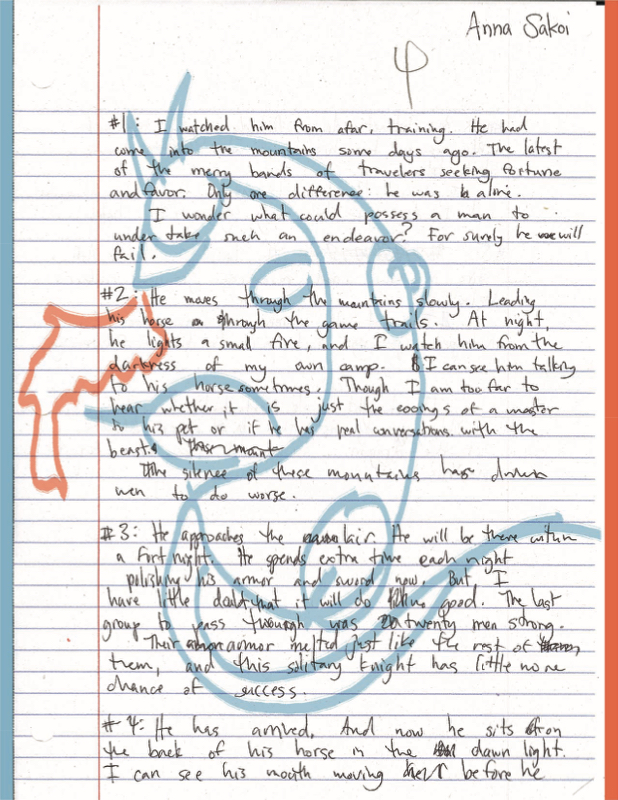 Anna Sakoi
φ
#1: I watched him from afar, training. He had
come into the mountains some days ago. The latest
of the merry bands of travelers seeking fortune
and favor. Only one difference: he was alone.
I wonder what could possess a man to
undertake such an endeavor? For surely he will
fail.
#2: He moves through the mountains slowly. Leading
his horse through the game trails. At night,
he lights a small fire, and I watch him from the
darkness of my own camp. I can see him talking
to his horse sometimes. Though I am too far to
hear whether it is just the cooings of a master
to his pet or if he has real conversations with the
beast.
The silence of these mountains has driven
men to do worse.
#3: He approaches the lair. He will be there within
a fortnight. He spends extra time each night
polishing his armor and sword now. But I
have little doubt that it will do him good. The last
group to pass through was twenty men strong.
Their armor melted just like the rest of
them, and this solitary knight has little no ne
chance of success.
#4: He has arrived. And now he sits on
the back of his horse in the dawn light.
I can see his mouth moving before he